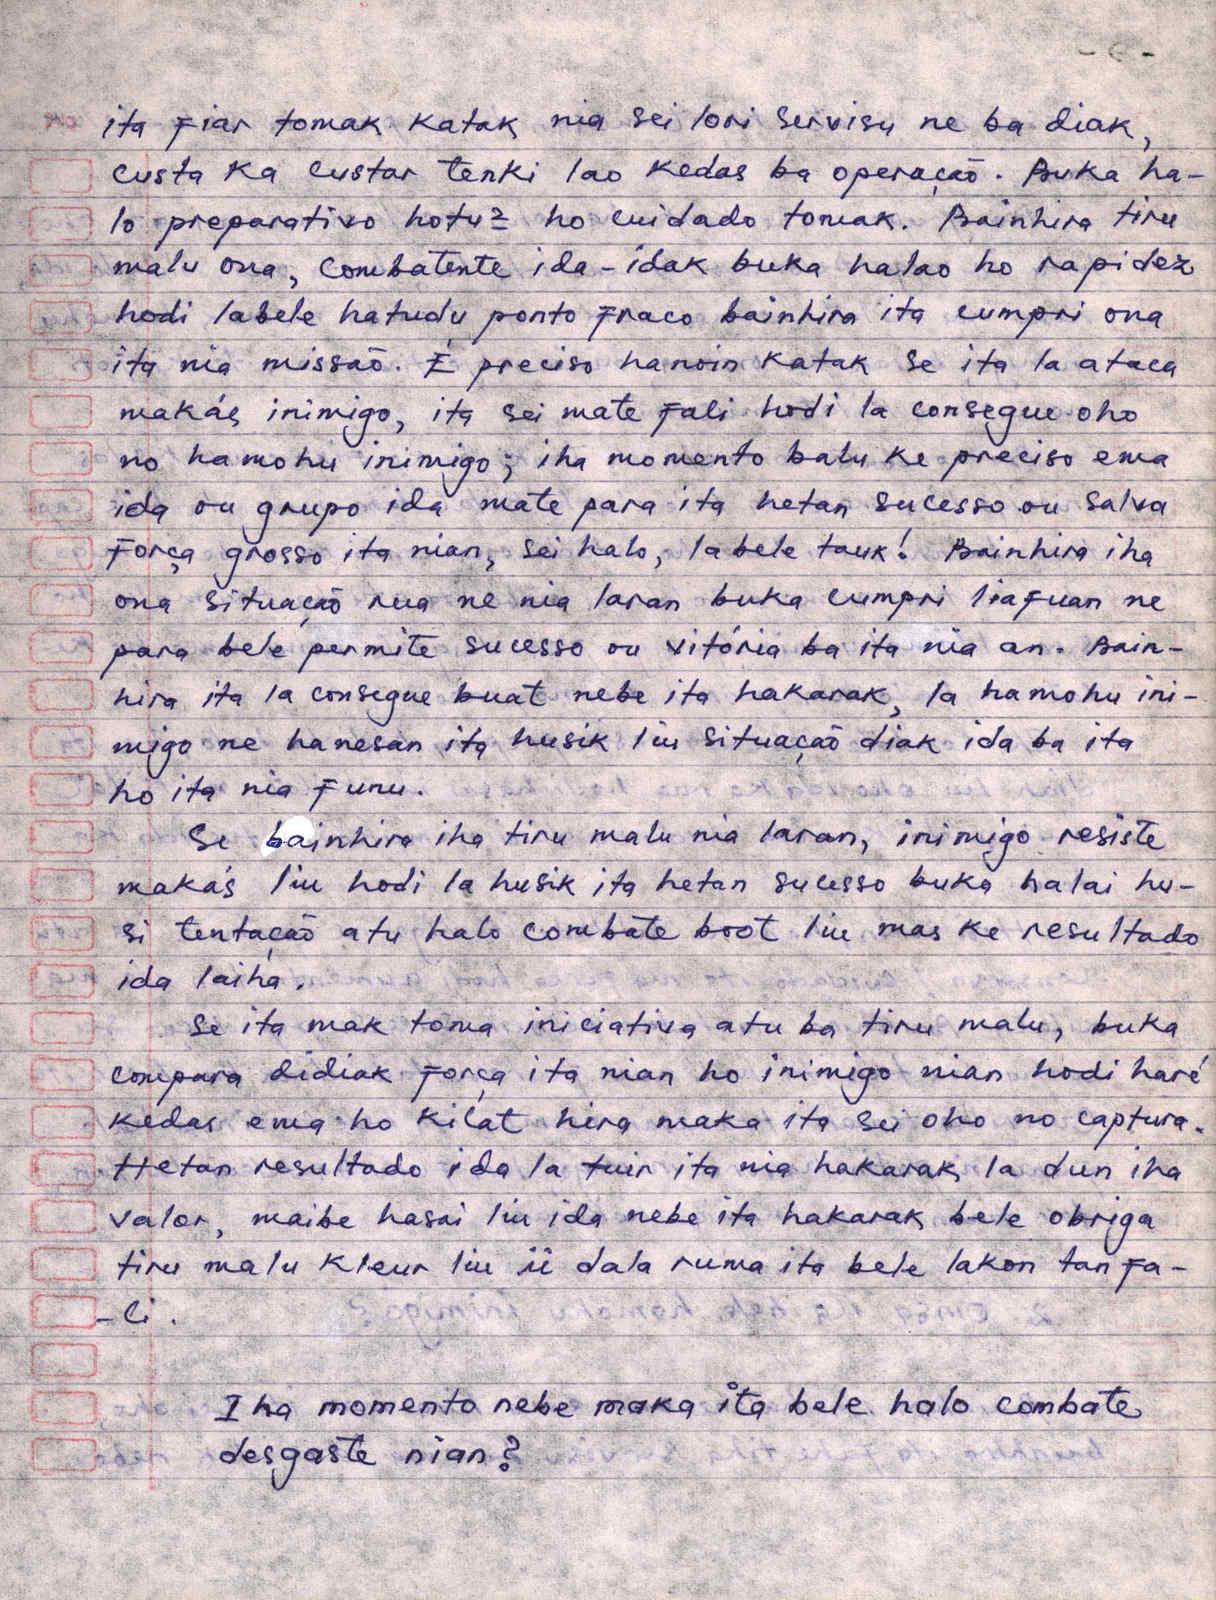 - 6 -
ita fiar tomak katak nia sei lori servisu ne ba diak,
custa ka custar tenki lao kedas ba operação. Buka ha-
lo preparativo hotu2 ho cuidado tomak. Bainhira tiru
malu ona, combatente ida-idak buka halao ho rapidez
hodi labele hatudu ponto fraco bainhira ita cumpri ona
ita nia missão. É preciso hanoin katak se ita la ataca
makás inimigo, ita sei mate fali hodi la consegue oho
no hamohu inimigo; iha momento balu ke preciso ema
ida ou grupo ida mate para ita hetan sucesso ou salva
força grosso ita nian, sei halo, labele tauk! Bainhira iha
ona situação rua ne nia laran buka cumpri liafuan ne
para bele permite sucesso ou vitória ba ita nia an. Bain-
hira ita la consegue buat nebe ita hakarak, la hamohu ini-
migo ne hanesan ita husik liu situação diak ida ba ita
ho ita nia funu.
Se bainhira iha tiru malu nia laran, inimigo resiste
makás liu hodi la husik ita hetan sucesso buka halai hu-
si tentação atu halo combate boot liu mas ke resultado
ida laiha.
Se ita mak toma iniciativa atu ba tiru malu, buka
compara didiak força ita nian ho inimigo nian hodi haré
kedas ema ho kilat hira maka ita sei oho no captura.
Hetan resultado ida la tuir ita nia hakarak la dun iha
valor, maibe hasai liu ida nebe ita hakarak bele obriga
tiru malu kleur liu ii dala ruma ita bele lakon tan fa-
-li.
Iha momento nebe maka ita bele halo combate
desgaste nian?